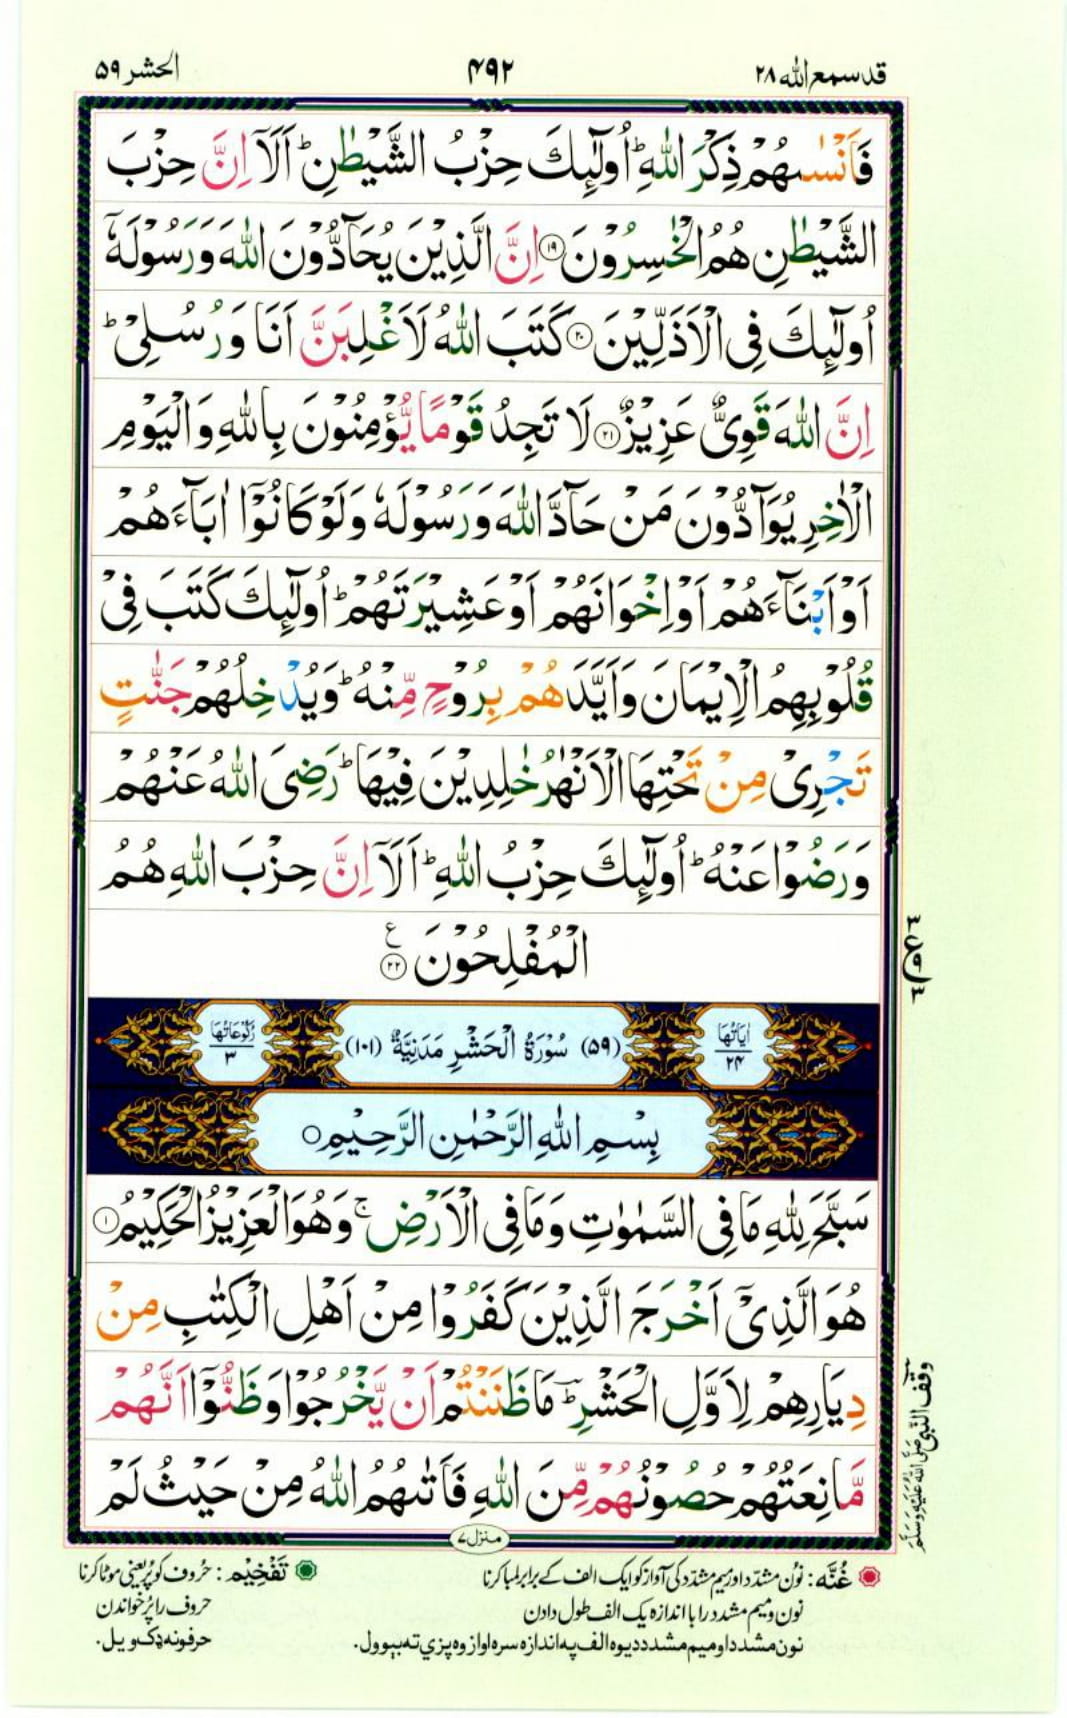 قد سمع الله ۲۸
۴۹۲
الحشر ۵۹
فَاَنْسٰىهُمْ ذِكْرَ اللّٰهِ ؕ اُولٰٓئِكَ حِزْبُ الشَّيْطٰنِ ؕ اَلَاۤ اِنَّ حِزْبَ
الشَّيْطٰنِ هُمُ الْخٰسِرُوْنَ ۱۹ اِنَّ الَّذِيْنَ يُحَآدُّوْنَ اللّٰهَ وَرَسُوْلَهٗۤ
اُولٰٓئِكَ فِي الْاَذَلِّيْنَ ۲۰ كَتَبَ اللّٰهُ لَاَغْلِبَنَّ اَنَا وَرُسُلِيْ ؕ
اِنَّ اللّٰهَ قَوِيٌّ عَزِيْزٌ ۲۱ لَا تَجِدُ قَوْمًا يُّؤْمِنُوْنَ بِاللّٰهِ وَالْيَوْمِ
الْاٰخِرِ يُوَآدُّوْنَ مَنْ حَآدَّ اللّٰهَ وَرَسُوْلَهٗ وَلَوْ كَانُوْۤا اٰبَآءَهُمْ
اَوْ اَبْنَآءَهُمْ اَوْ اِخْوَانَهُمْ اَوْ عَشِيْرَتَهُمْ ؕ اُولٰٓئِكَ كَتَبَ فِيْ
قُلُوْبِهِمُ الْاِيْمَانَ وَاَيَّدَهُمْ بِرُوْحٍ مِّنْهُ ؕ وَيُدْخِلُهُمْ جَنّٰتٍ
تَجْرِيْ مِنْ تَحْتِهَا الْاَنْهٰرُ خٰلِدِيْنَ فِيْهَا ؕ رَضِيَ اللّٰهُ عَنْهُمْ
وَرَضُوْا عَنْهُ ؕ اُولٰٓئِكَ حِزْبُ اللّٰهِ ؕ اَلَاۤ اِنَّ حِزْبَ اللّٰهِ هُمُ
الْمُفْلِحُوْنَ ۲۲ ع
اٰيَاتُهَا ۲۴
(۵۹) سُوْرَةُ الْحَشْرِ مَدَنِيَّةٌ (۱۰۱)
رُكُوْعَاتُهَا ۳
بِسْمِ اللّٰهِ الرَّحْمٰنِ الرَّحِيْمِ ○
سَبَّحَ لِلّٰهِ مَا فِي السَّمٰوٰتِ وَمَا فِي الْاَرْضِ ۚ وَهُوَ الْعَزِيْزُ الْحَكِيْمُ ۱
هُوَ الَّذِيْۤ اَخْرَجَ الَّذِيْنَ كَفَرُوْا مِنْ اَهْلِ الْكِتٰبِ مِنْ
دِيَارِهِمْ لِاَوَّلِ الْحَشْرِ ؕ مَا ظَنَنْتُمْ اَنْ يَّخْرُجُوْا وَظَنُّوْۤا اَنَّهُمْ
مَّانِعَتُهُمْ حُصُوْنُهُمْ مِّنَ اللّٰهِ فَاَتٰىهُمُ اللّٰهُ مِنْ حَيْثُ لَمْ
وقف النبی صلى الله عليه وسلم
منزل ۷
غُنَّه : نون مشدد اور میم مشدد کی آواز کو ایک الف کے برابر لمبا کرنا
نون و میم مشدد را با اندازه یک الف طول دادن
نون مشدد او میم مشدد دیوه الف په اندازه سره اواز وه پزي ته بیوول.
تَفْخِيْم : حروف کو پُر یعنی موٹا کرنا
حروف را پُر خواندن
حرفونه ډک ویل.